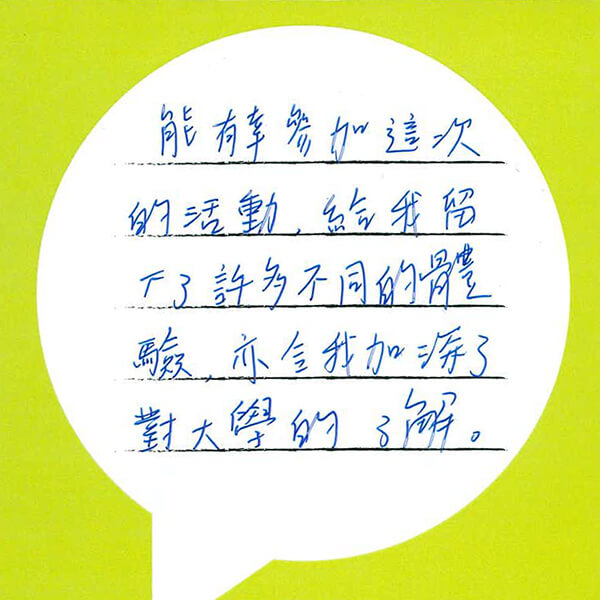 能有幸參加這次
的活動，給我留
下了許多不同的體
驗，亦令我加深了
對大學的了解。